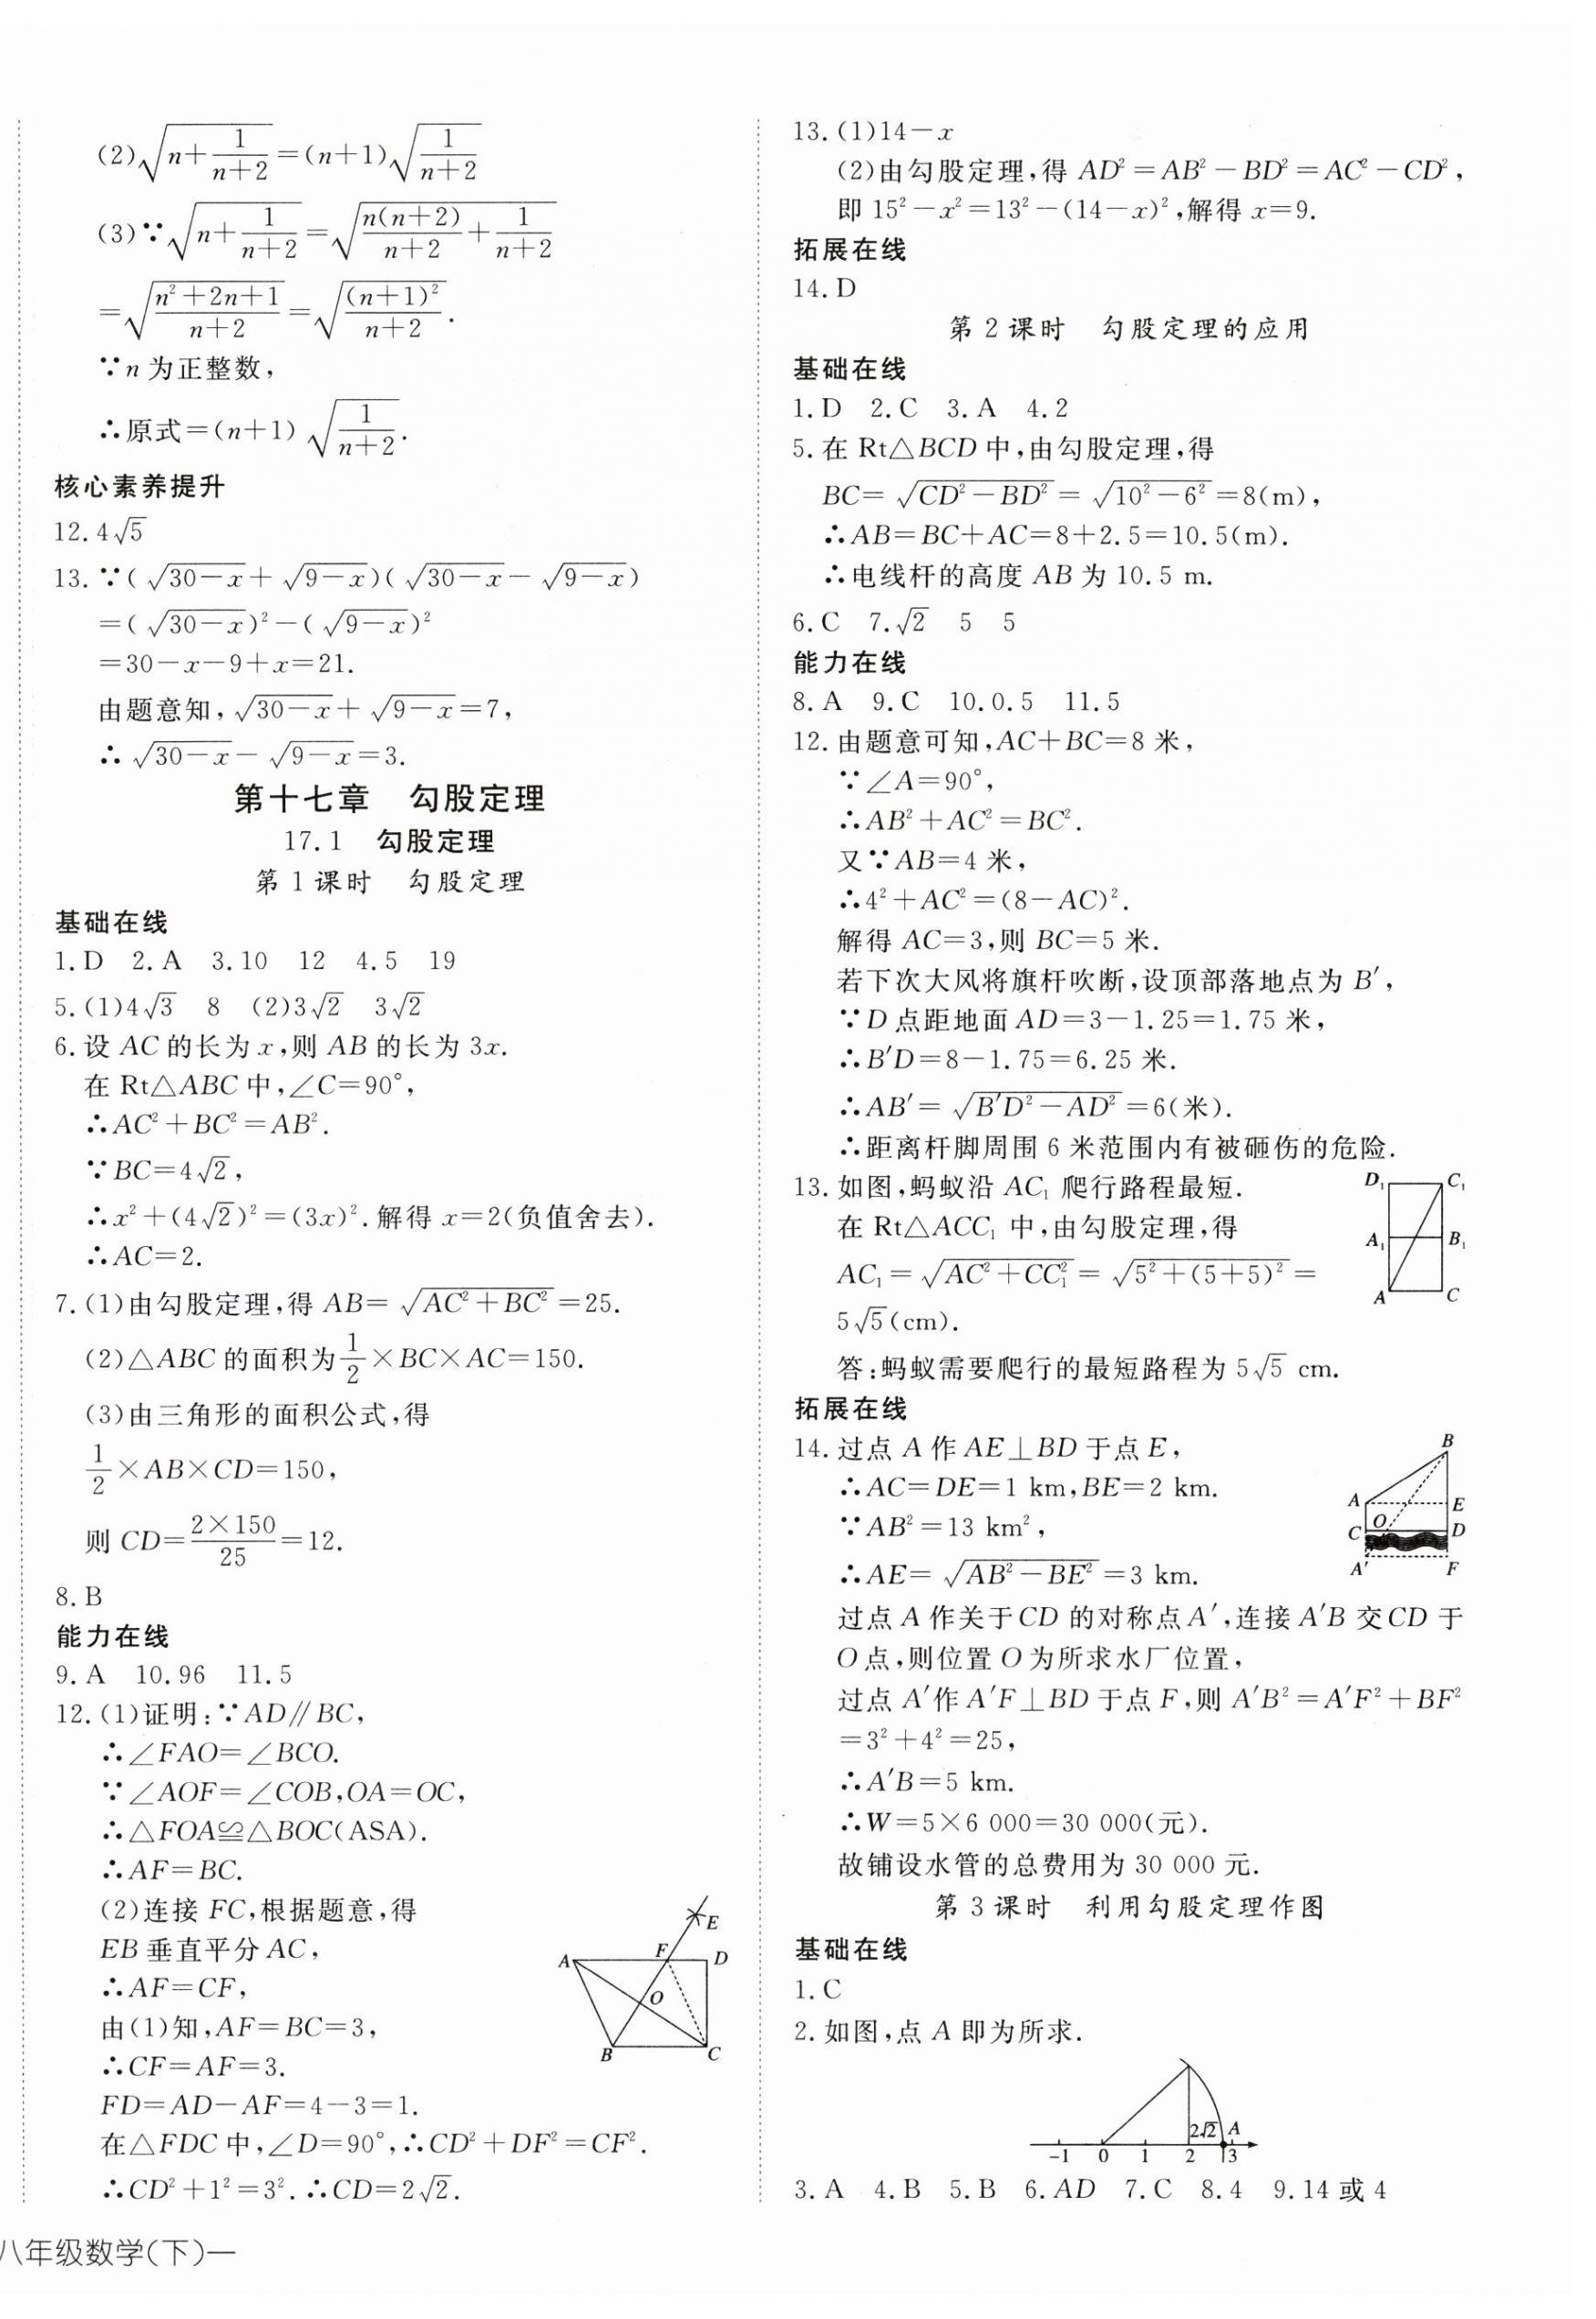 (2)√(n+1/(n+2))=(n+1)√(1/(n+2))
(3)∵√(n+1/(n+2))=√(n(n+2)/(n+2)+1/(n+2))
=√((n²+2n+1)/(n+2))=√((n+1)²/(n+2)).
∵n为正整数,
∴原式=(n+1)√(1/(n+2)).
核心素养提升
12.4√5
13.∵(√(30-x)+√(9-x))(√(30-x)-√(9-x))
=(√(30-x))²-(√(9-x))²
=30-x-9+x=21.
由题意知,√(30-x)+√(9-x)=7,
∴√(30-x)-√(9-x)=3.
第十七章 勾股定理
17.1 勾股定理
第1课时 勾股定理
基础在线
1.D 2.A 3.10 12 4.5 19
5.(1)4√3 8 (2)3√2 3√2
6.设AC的长为x,则AB的长为3x.
在Rt△ABC中,∠C=90°,
∴AC²+BC²=AB².
∵BC=4√2,
∴x²+(4√2)²=(3x)².解得x=2(负值舍去).
∴AC=2.
7.(1)由勾股定理,得AB=√(AC²+BC²)=25.
(2)△ABC的面积为1/2×BC×AC=150.
(3)由三角形的面积公式,得
1/2×AB×CD=150,
则CD=(2×150)/25=12.
8.B
能力在线
9.A 10.96 11.5
12.(1)证明:∵AD∥BC,
∴∠FAO=∠BCO.
∵∠AOF=∠COB,OA=OC,
∴△FOA≌△BOC(ASA).
∴AF=BC.
(2)连接FC,根据题意,得
EB垂直平分AC,
∴AF=CF,
由(1)知,AF=BC=3,
∴CF=AF=3.
FD=AD-AF=4-3=1.
在△FDC中,∠D=90°,∴CD²+DF²=CF².
∴CD²+1²=3².∴CD=2√2.
E
A F D
O
B C
八年级数学(下)—
13.(1)14-x
(2)由勾股定理,得AD²=AB²-BD²=AC²-CD²,
即15²-x²=13²-(14-x)²,解得x=9.
拓展在线
14.D
第2课时 勾股定理的应用
基础在线
1.D 2.C 3.A 4.2
5.在Rt△BCD中,由勾股定理,得
BC=√(CD²-BD²)=√(10²-6²)=8(m),
∴AB=BC+AC=8+2.5=10.5(m).
∴电线杆的高度AB为10.5 m.
6.C 7.√2 5 5
能力在线
8.A 9.C 10.0.5 11.5
12.由题意可知,AC+BC=8米,
∵∠A=90°,
∴AB²+AC²=BC².
又∵AB=4米,
∴4²+AC²=(8-AC)².
解得AC=3,则BC=5米.
若下次大风将旗杆吹断,设顶部落地点为B′,
∵D点距地面AD=3-1.25=1.75米,
∴B′D=8-1.75=6.25米.
∴AB′=√(B′D²-AD²)=6(米).
∴距离杆脚周围6米范围内有被砸伤的危险.
13.如图,蚂蚁沿AC₁爬行路程最短.
在Rt△ACC₁中,由勾股定理,得
AC₁=√(AC²+CC₁²)=√(5²+(5+5)²)=
5√5(cm).
答:蚂蚁需要爬行的最短路程为5√5 cm.
D₁ C₁
A₁ B₁
A C
拓展在线
14.过点A作AE⊥BD于点E,
∴AC=DE=1 km,BE=2 km.
∵AB²=13 km²,
∴AE=√(AB²-BE²)=3 km.
过点A作关于CD的对称点A′,连接A′B交CD于
O点,则位置O为所求水厂位置,
过点A′作A′F⊥BD于点F,则A′B²=A′F²+BF²
=3²+4²=25,
∴A′B=5 km.
∴W=5×6 000=30 000(元).
故铺设水管的总费用为30 000元.
B
A E
O
C D
A′ F
第3课时 利用勾股定理作图
基础在线
1.C
2.如图,点A即为所求.
2√2 A
-1 0 1 2 3
3.A 4.B 5.B 6.AD 7.C 8.4 9.14或4